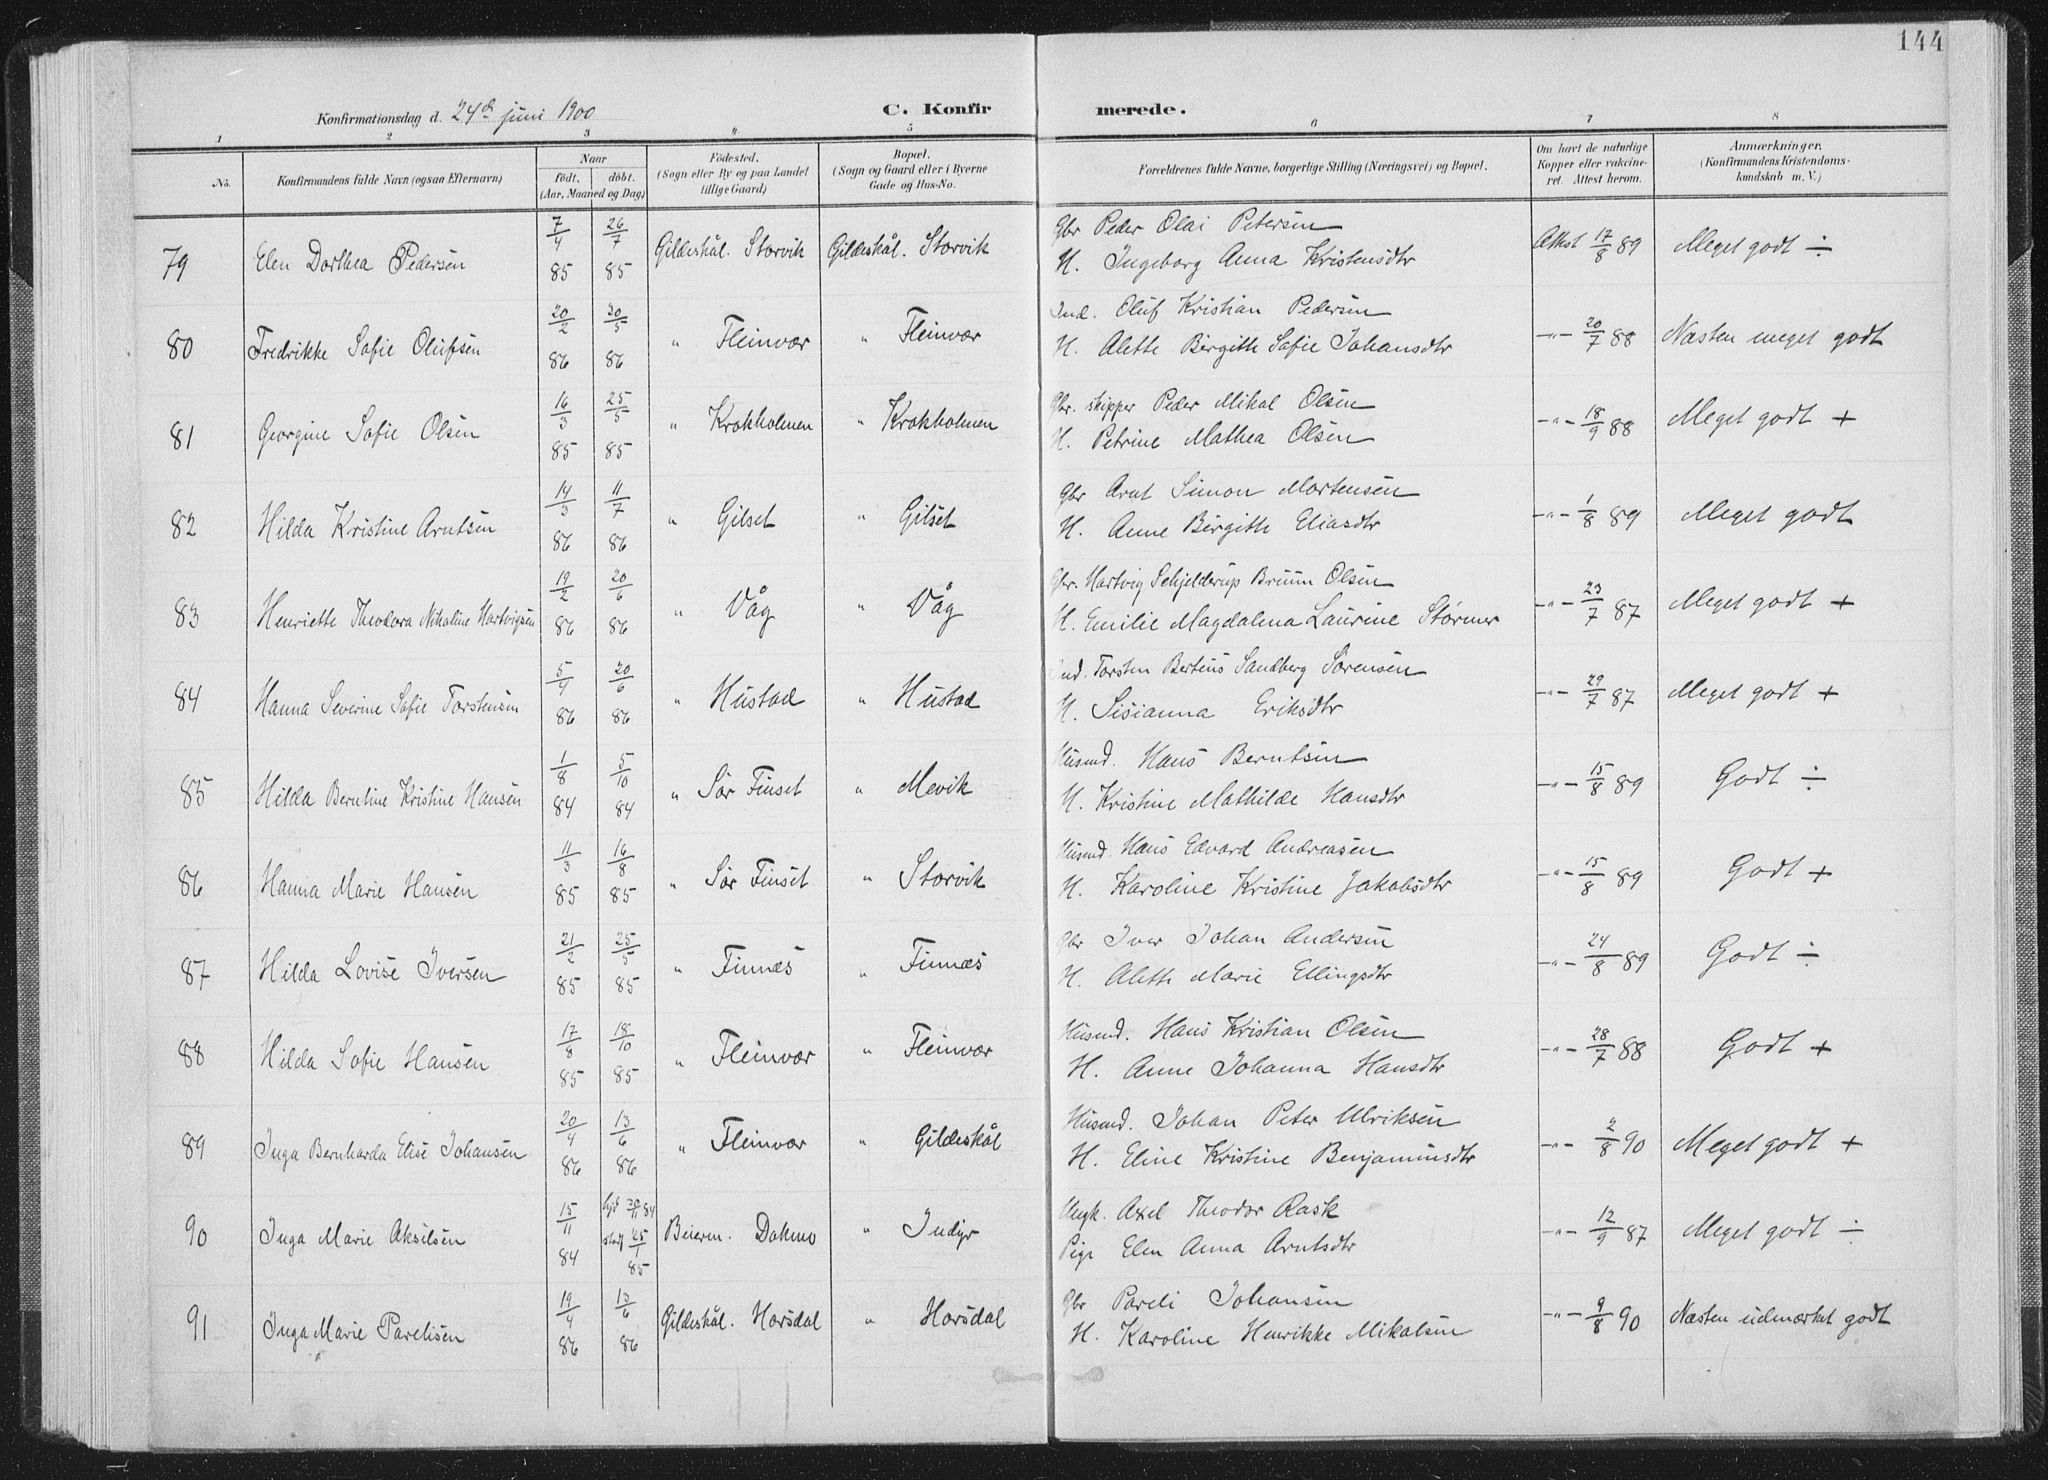 144
Konfirmationsdag d. 24de juni 1900 C. Konfir merede.
1 2 3 4 5 6 7 8
No. Konfirmandens fulde Navn (ogsaa Efternavn) Naar født. døbt. (Aar, Maaned og Dag) Fødested. (Sogn eller By og paa Landet tillige Gaard) Bopæl. (Sogn og Gaard eller i Byerne Gade og Hus-No. Forældrenes fulde Navne, borgerlige Stilling (Næringsvei) og Bopæl. Om havt de naturlige Kopper eller vaccineret. Attest herom. Anmærkninger. (Konfirmandens Kristendomskundskab m. V.)
79 Elen Dorthea Pedersen 7/4 85 26/7 85 Gildeskål. Storvik Gildeskål. Storvik Gbr Peder Olai Petersen
H. Ingeborg Anna Kristensdtr Attest 17/8 89 Meget godt ÷
80 Fredrikke Sofie Olufsen 20/2 86 20/5 86 " Fleinvær " Fleinvær Ind. Oluf Kristian Pedersen
H. Alette Birgitte Sofie Johansdtr -"- 20/7 88 Næsten meget godt
81 Georgine Sofie Olsen 16/3 85 25/5 85 " Krokholmen " Krokholmen Gbr. skipper Peder Mikal Olsen
H. Petrine Mathea Olsen -"- 18/9 88 Meget godt +
82 Hilda Kristine Arntsen 14/3 86 11/7 86 " Gilset " Gilset Gbr Arnt Simon Mortensen
H. Anne Birgitte Eliasdtr -"- 1/8 89 Meget godt
83 Henriette Theodora Nikoline Hartvigsen 19/2 86 20/6 86 " Våg " Våg Gbr. Hartvig Schjelderup Bruun Olsen
H. Emilie Magdalena Laurine Størmer -"- 23/7 87 Meget godt +
84 Hanna Severine Sofie Torstensen 5/4 86 20/6 86 " Hustad " Hustad Ind. Torsten Berteus Sandberg Sørensen
H. Sisianna Eriksdtr -"- 29/7 87 Meget godt +
85 Hilda Berntine Kristine Hansen 1/8 84 5/10 84 " Sør Finset " Mevik Husmd. Hans Berntsen
H. Kristine Mathilde Hansdtr -"- 15/8 89 Godt ÷
86 Hanna Marie Hansen 11/3 85 16/8 85 " Sør Finset " Storvik Husmd. Hans Edvard Andreasen
H. Karoline Kristine Jakobsdtr -"- 15/8 89 Godt +
87 Hilda Lovise Iversen 21/2 85 25/5 85 " Finnæs " Finnæs Gbr Iver Johan Andersen
H. Alette Marie Ellingsdtr -"- 24/8 89 Godt ÷
88 Hilda Sofie Hansen 17/8 85 18/10 85 " Fleinvær " Fleinvær Husmd. Hans Kristian Olsen
H. Anne Johanna Hansdtr -"- 28/7 88 Godt +
89 Inga Bernharda Elise Johansen 20/4 86 13/6 86 " Fleinvær " Gildeskål Husmd. Johan Peter Ulriksen
H. Eline Kristine Benjaminsdtr -"- 2/8 90 Meget godt +
90 Inga Marie Akselsen 15/11 84 hjd 30/11 84 stadf 25/1 85 Beiern. Dokmo " Indyr Ungk. Axel Theodor Rask
Pige Elen Anna Arntsdtr -"- 12/9 87 Meget godt ÷
91 Inga Marie Parelisen 19/4 86 13/6 86 Gildeskål. Horsdal " Horsdal Gbr Pareli Johansen
H. Karoline Henrikke Mikalsen -"- 9/8 90 Næsten udmærket godt